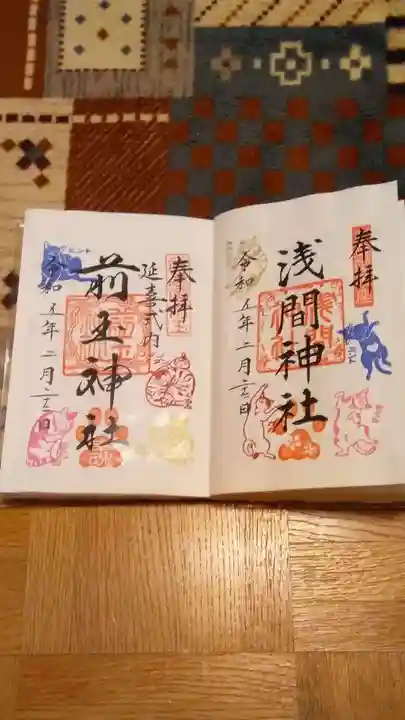 奉拝
浅間神社
令和五年二月二十二日
奉拝
延喜式内
前玉神社
令和五年二月二十二日